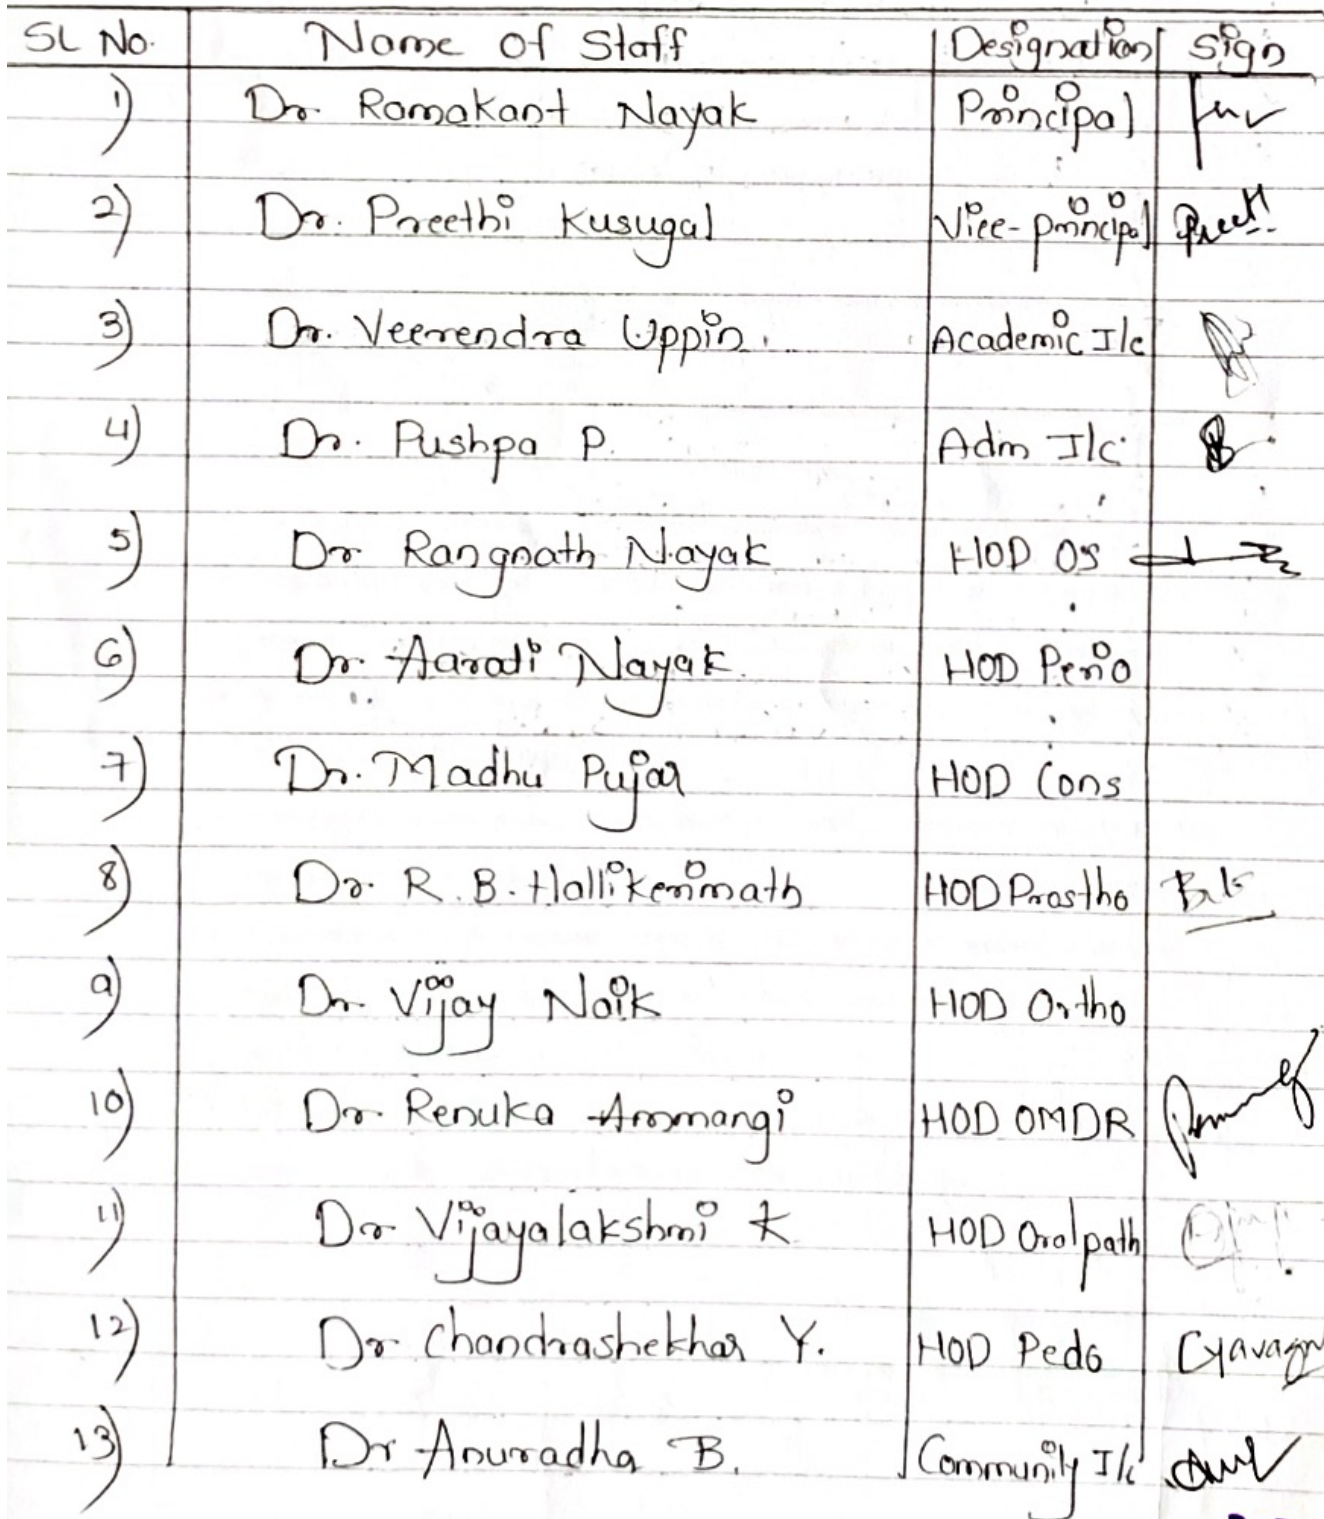 SL No. Name of Staff Designation Sign
1) Dr. Ramakant Nayak Principal
2) Dr. Preethi Kusugal Vice-principal Preethi
3) Dr. Veerendra Uppin. Academic I/c
4) Dr. Pushpa P. Adm I/c
5) Dr Rangnath Nayak HOD OS
6) Dr. Aarati Nayak HOD Perio
7) Dr. Madhu Pujar HOD Cons
8) Dr. R. B. Hallikerimath HOD Prostho
9) Dr. Vijay Naik HOD Ortho
10) Dr. Renuka Ammangi HOD OMDR
11) Dr Vijayalakshmi K HOD Oralpath
12) Dr Chandrashekhar Y. HOD Pedo
13) Dr Anuradha B. Community I/c